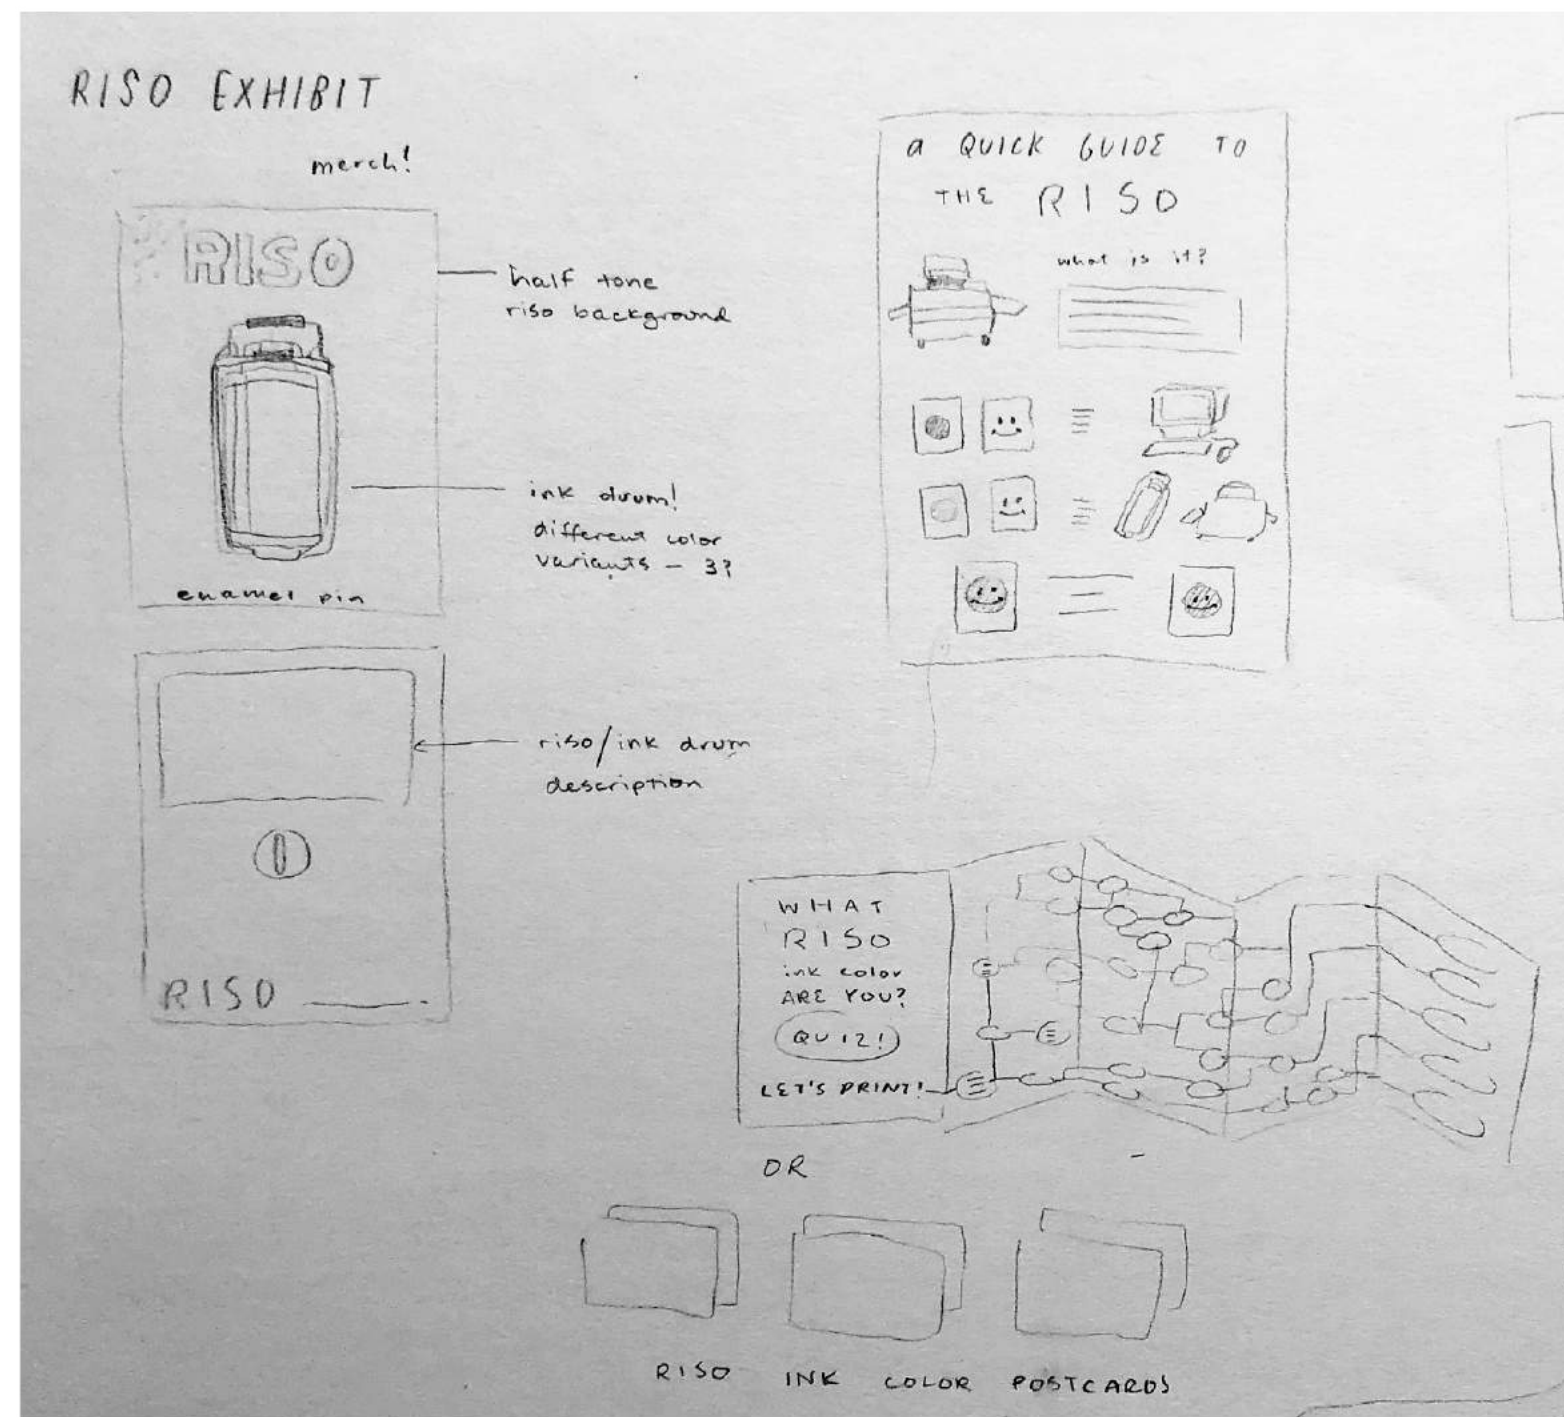 RISO EXHIBIT
merch!
RISO
half tone
riso background
ink drum!
different color
variants - 3?
enamel pin
riso/ink drum
description
RISO
a QUICK GUIDE TO
THE RISO
what is it?
WHAT
RISO
ink color
ARE YOU?
QUIZ!
LET'S PRINT!
OR
RISO INK COLOR POSTCARDS